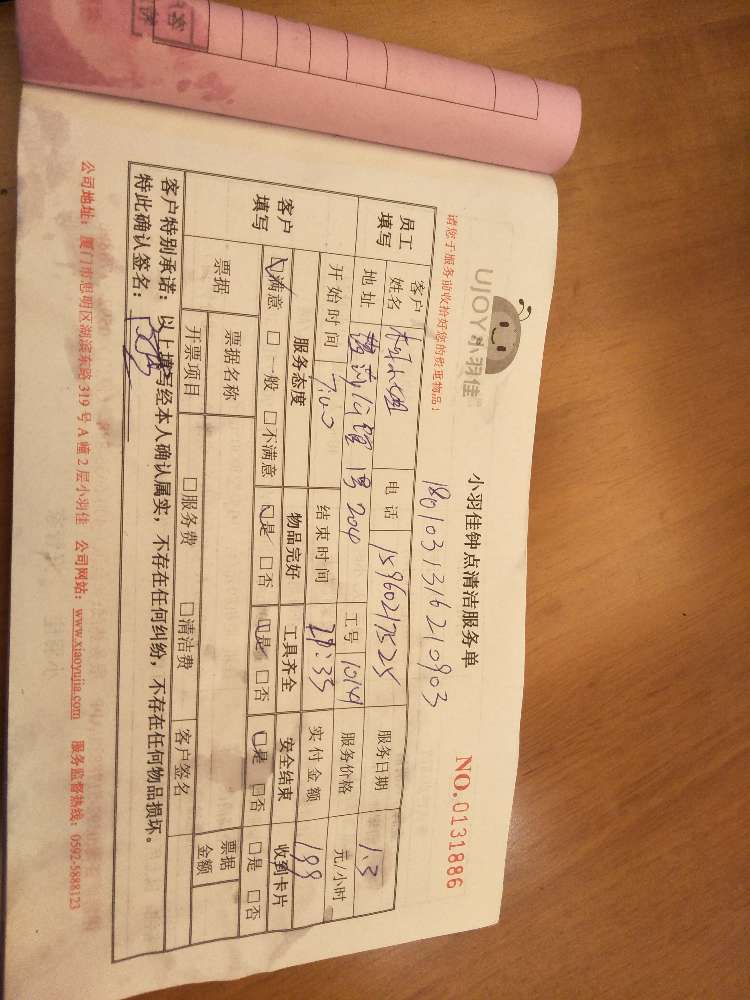 UJOY小羽佳
小羽佳钟点清洁服务单
NO.0131886
请您于服务前收拾好您的贵重物品！
1801031316210903
员工填写 客户姓名 林小姐 电话 15960217525 服务日期 1.3
地址 1号204 工号 1014 服务价格 元/小时
开始时间 7:00 结束时间 21:35 实付金额 199
客户填写 服务态度 物品完好 工具齐全 安全结束 收到卡片
☑满意 □一般 □不满意 ☑是 □否 ☑是 □否 ☑是 □否 □是 □否
票据 票据名称 票据金额
开票项目 □服务费 □清洁费 客户签名
客户特别承诺：以上填写经本人确认属实，不存在任何纠纷，不存在任何物品损坏。
特此确认签名：
公司地址：厦门市思明区湖滨东路319号A幢2层小羽佳 公司网站：www.xiaoyujia.com 服务监督热线：0592-5888123